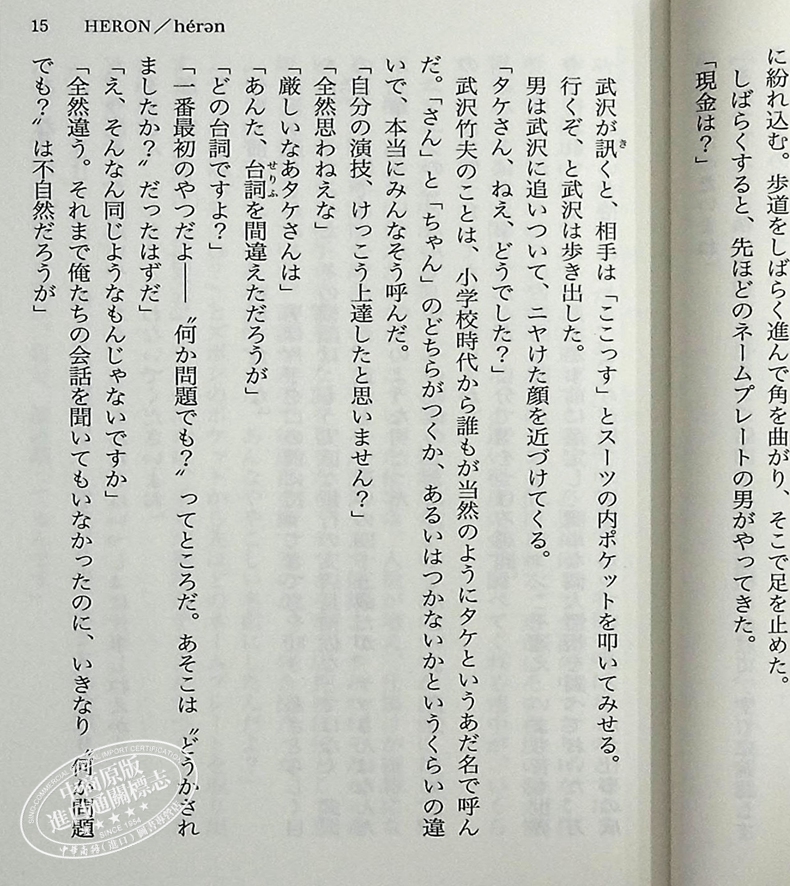 に紛れ込む。歩道をしばらく進んで角を曲がり、そこで足を止めた。
しばらくすると、先ほどのネームプレートの男がやってきた。
「現金は？」
15 HERON／hérən
武沢が訊くと、相手は「ここっす」とスーツの内ポケットを叩いてみせる。
き
行くぞ、と武沢は歩き出した。
男は武沢に追いついて、ニヤけた顔を近づけてくる。
「タケさん、ねえ、どうでした？」
武沢竹夫のことは、小学校時代から誰もが当然のようにタケというあだ名で呼ん
だ。「さん」と「ちゃん」のどちらがつくか、あるいはつかないかというくらいの違
いで、本当にみんなそう呼んだ。
「自分の演技、けっこう上達したと思いません？」
「全然思わねえな」
「厳しいなあタケさんは」
「あんた、台詞を間違えただろうが」
せりふ
「どの台詞ですよ？」
「一番最初のやつだよ――〝何か問題でも？〟ってところだ。あそこは〝どうかされ
ましたか？〟だったはずだ」
「え、そんなん同じようなもんじゃないですか」
「全然違う。それまで俺たちの会話を聞いてもいなかったのに、いきなり〝何か問題
でも？〟は不自然だろうが」
SINO-COMMERCIAL IMPORT MARKING CERTIFICATION
中国原版
進口通關標志
SINCE 1984
中華商務[進口]圖書專營店